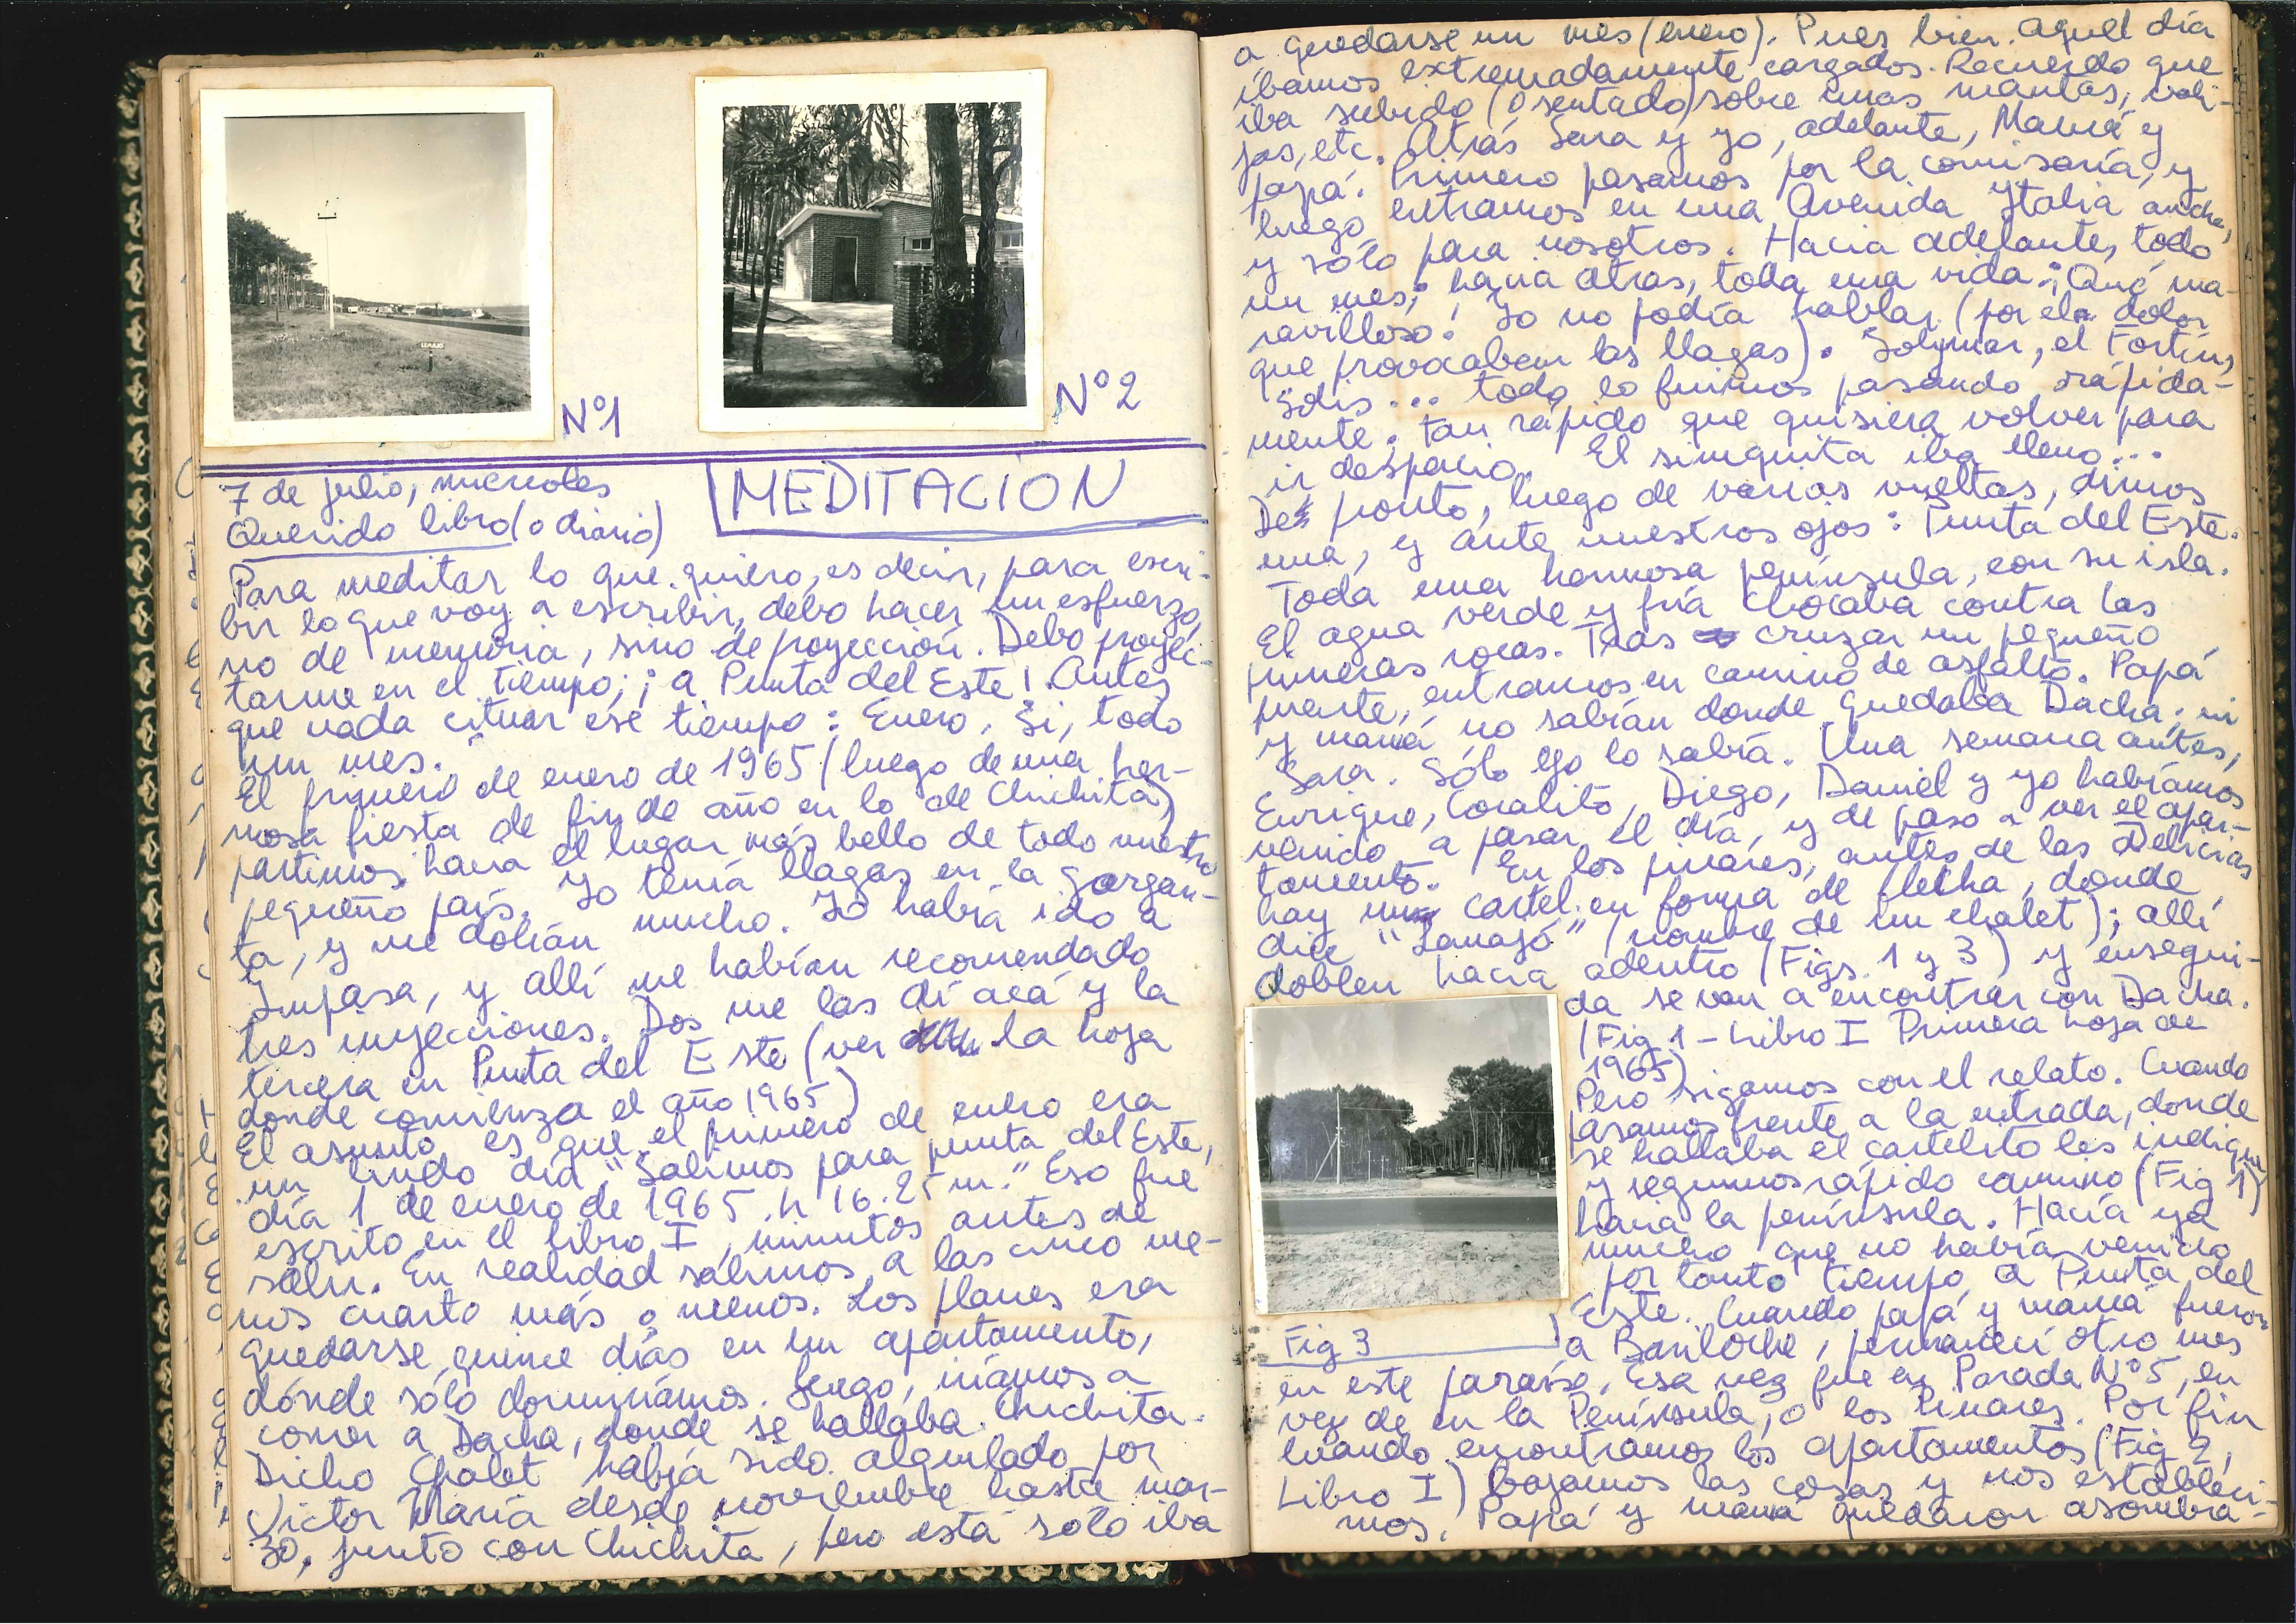 LEMAJO
Nº1
Nº2
7 de julio, miércoles
MEDITACION
Querido libro (o diario)
Para meditar lo que quiero, es decir, para escri-
bir lo que voy a escribir, debo hacer un esfuerzo,
no de memoria, sino de proyección. Debo proyec-
tarme en el tiempo; ¡a Punta del Este! Antes
que nada situar ese tiempo: Enero. Si, todo
un mes.
El primero de enero de 1965 (luego de una her-
mosa fiesta de fin de año en lo de Chichita)
partimos hacia el lugar más bello de todo nuestro
pequeño país. Yo tenía llagas en la gargan-
ta, y me dolían mucho. Yo había ido a
Impasa, y allí me habían recomendado
tres inyecciones. Dos me las dí acá y la
tercera en Punta del Este (ver la hoja
donde comienza el año 1965)
El asunto es que el primero de enero era
un lindo día. "Salimos para punta del Este,
día 1 de enero de 1965. h 16.25 m." Eso fue
escrito en el libro I, minutos antes de
salir. En realidad salimos a las cinco me-
nos cuarto más o menos. Los planes era
quedarse quince días en un apartamento,
dónde sólo dormiríamos. Luego, iríamos a
comer a Dacha, donde se hallaba Chichita.
Dicho Chalet había sido alquilado por
Victor María desde noviembre hasta mar-
zo, junto con Chichita, pero está solo iba
a quedarse un mes (enero). Pues bien. aquel día
íbamos extremadamente cargados. Recuerdo que
iba subido (o sentado) sobre unas mantas, vali-
jas, etc. Atrás Sara y yo, adelante, Mamá y
papá. Primero pasamos por la comisaría, y
luego entramos en una Avenida Ytalia ancha,
y sólo para nosotros. Hacia adelante, todo
un mes; hacia atras, toda una vida. ¡Qué ma-
ravilloso! Yo no podía hablar (por el dolor
que provocaban las llagas). Solymar, el Fortín,
Solís... todo lo fuimos pasando rápida-
mente. tan rápido que quisiera volver para
ir despacio. El simquita iba lleno...
De pronto, luego de varias vueltas, dimos
una, y ante nuestros ojos: Punta del Este.
Toda una hermosa península, con su isla.
El agua verde y fría chocaba contra las
primeras rocas. Tras cruzar un pequeño
puente, entramos en camino de asfalto. Papá
y mamá no sabían donde quedaba Dacha; ni
Sara. Sólo yo lo sabía. Una semana antes,
Enrique, Coralito, Diego, Daniel y yo habíamos
venido a pasar el día, y de paso a ver el apar-
tamento. En los pinares, antes de las Delicias
hay un cartel en forma de flecha, donde
dice "Lamajó" (nombre de un chalet); allí
doblen hacia adentro (Figs. 1 y 3) y ensegui-
da se van a encontrar con Dacha.
(Fig 1 - Libro I Primera hoja de
1965)
Pero sigamos con el relato. Cuando
pasamos frente a la entrada, donde
se hallaba el cartelito les indiqué
y seguimos rápido camino (Fig 1)
hacia la península. Hacía ya
mucho que no había venido
por tanto tiempo a Punta del
Este. Cuando papá y mamá fueron
a Bariloche, permanecí otro mes
Fig 3
en este paraíso. Esa vez fue en Parada Nº5, en
vez de en la Península, o los Pinares. Por fin
cuando encontramos los apartamentos (Fig 2,
Libro I) bajamos las cosas y nos estableci-
mos. Papá y mamá quedaron asombra-